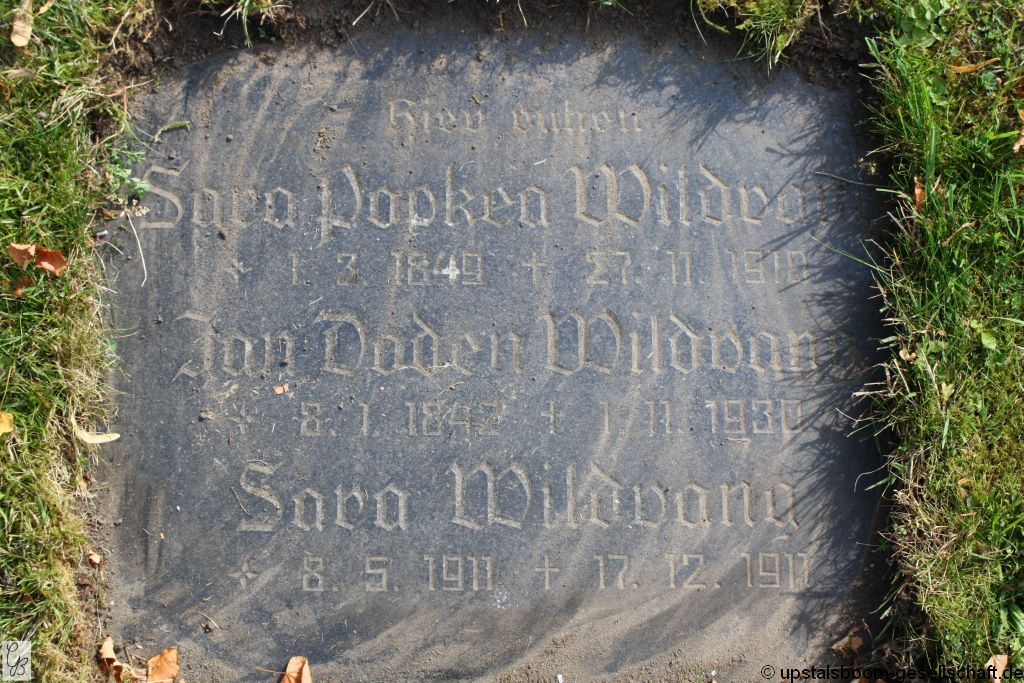 Hier ruhen
Sara Popkea Wildvang
* 1. 3. 1849 + 27. 11. 1910
Jan Doden Wildvang
* 8. 1. 1842 + 1. 11. 1930
Sara Wildvang
* 8. 5. 1911 + 17. 12. 1911
GB
© upstalsboom-gesellschaft.de